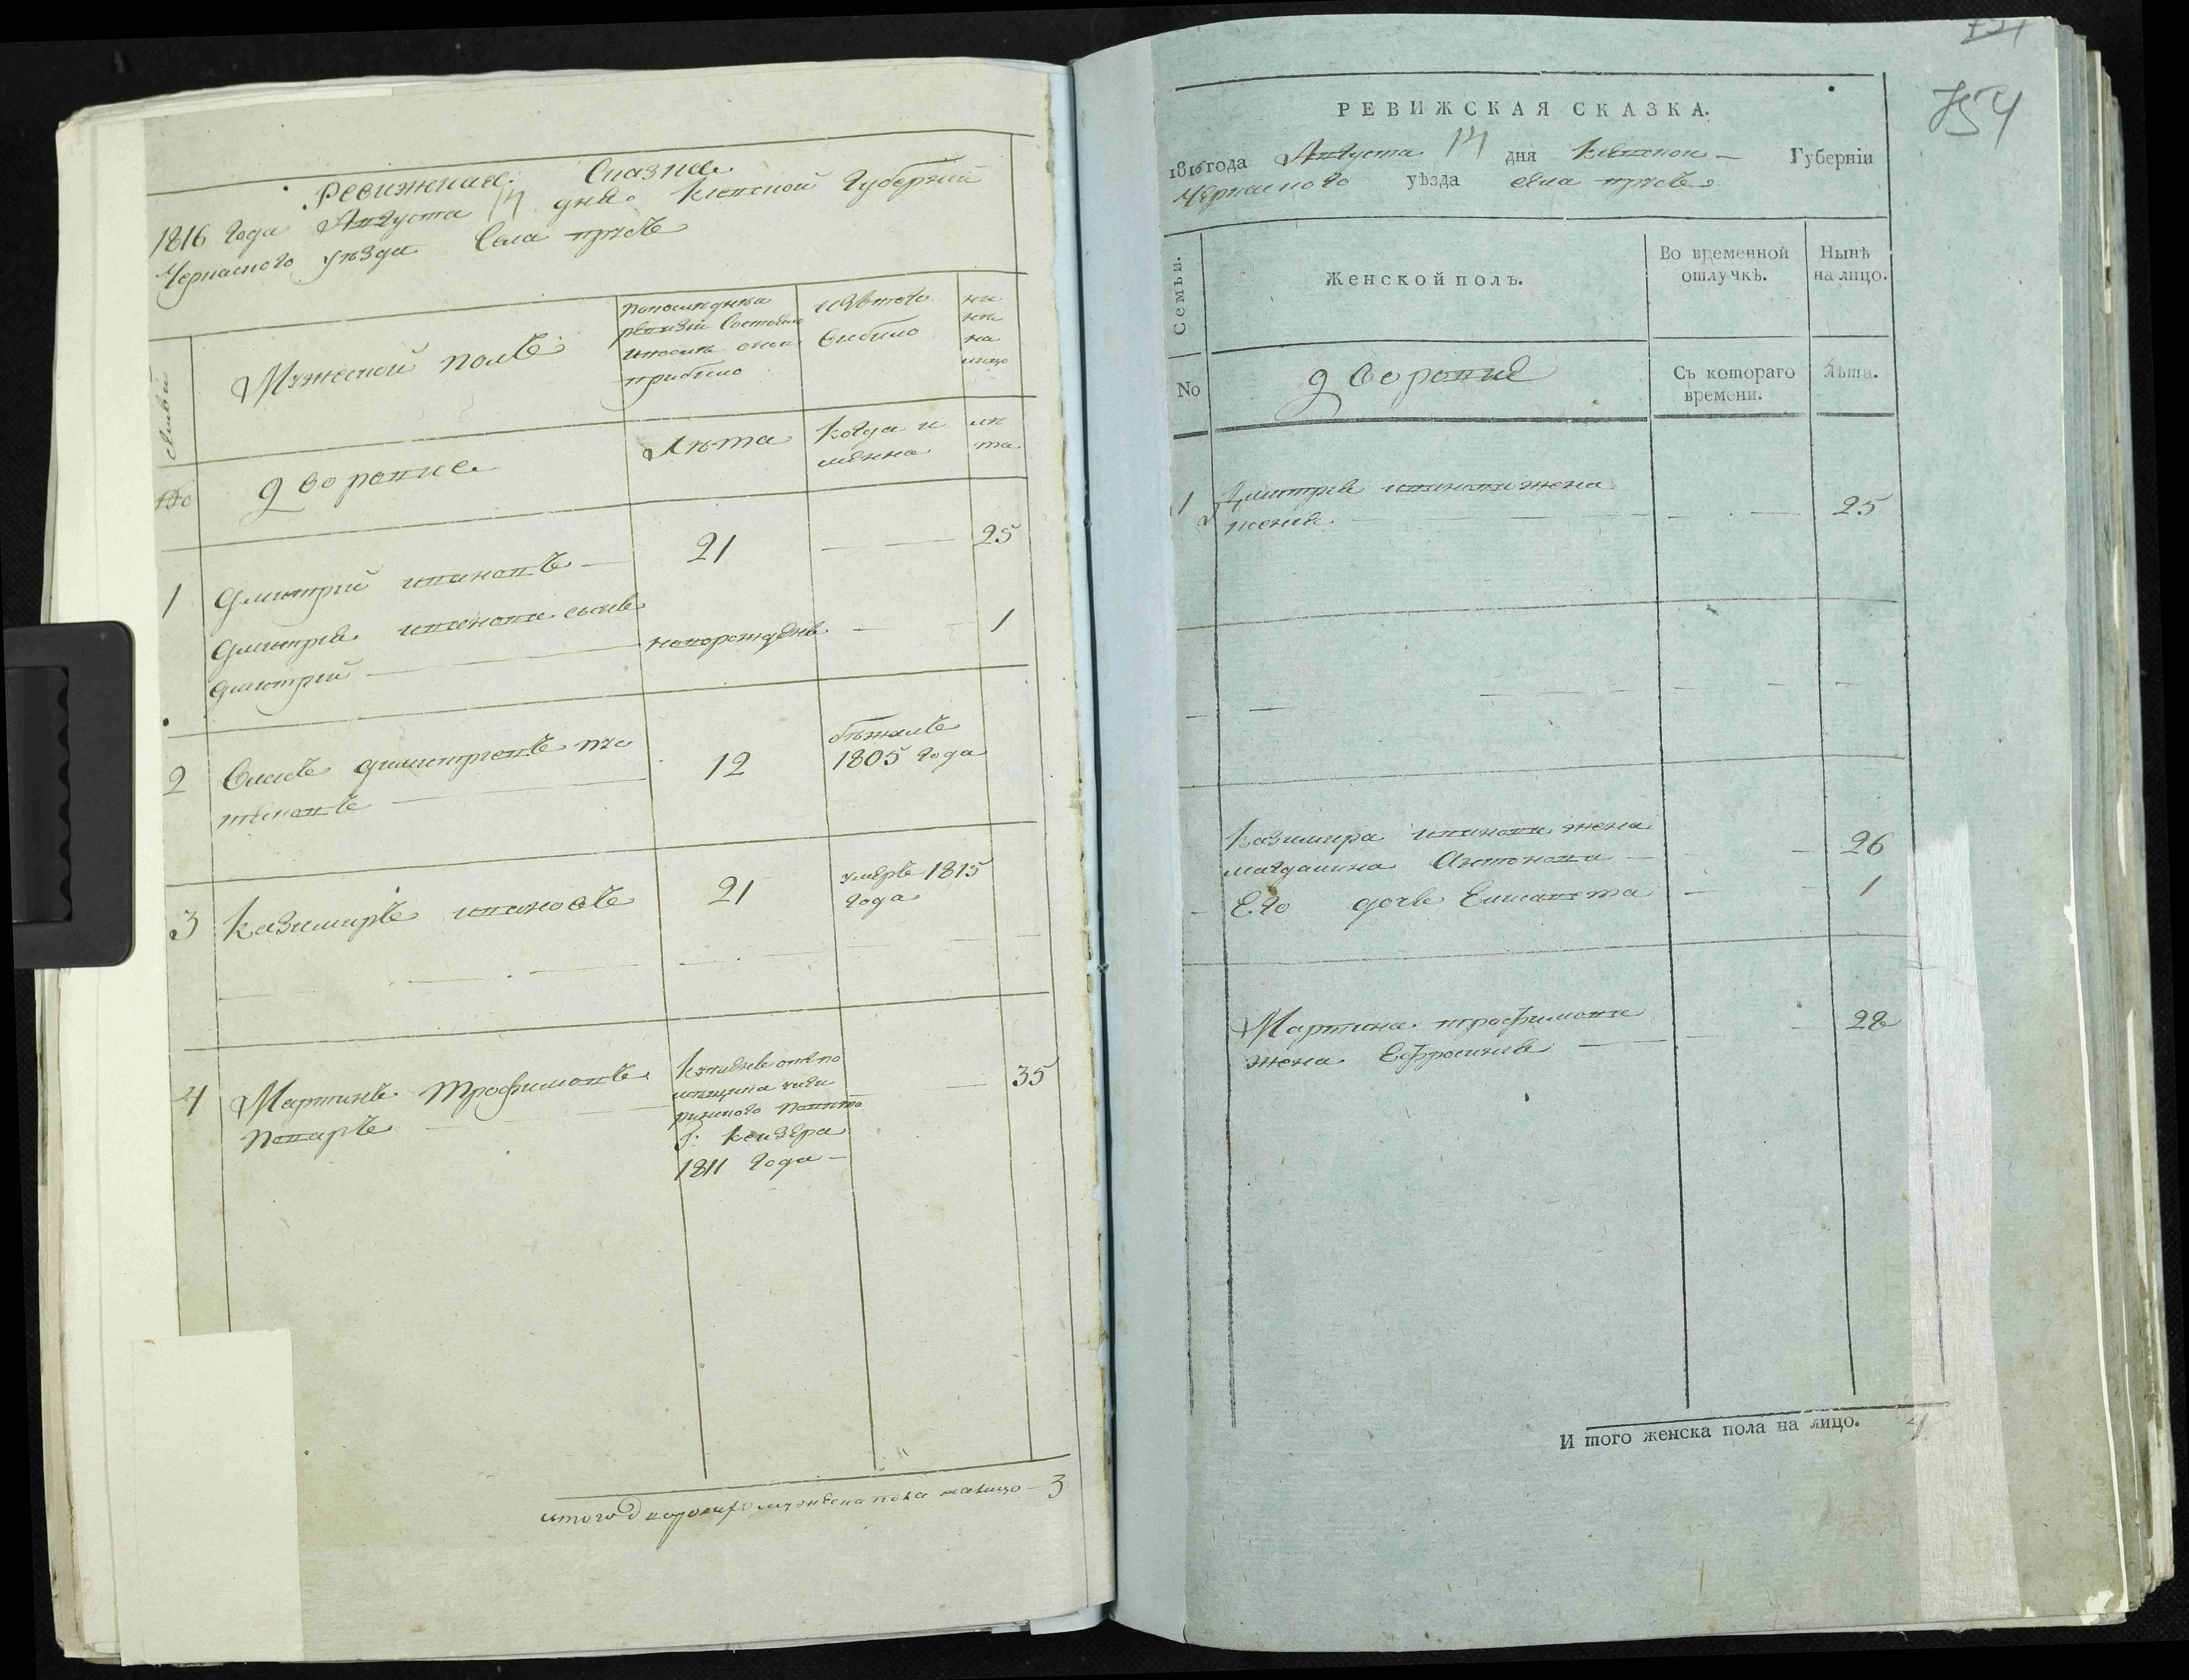 Ревижская Сказка
1816 года Августа 14 дня Киевской Губернии
Черкаского уезда Села
Мужеской полъ
по последней
ревизии состояло
и после оной
прибыло
изъ того
выбыло
ны
не
на
лицо
семьи
№
дворовые
Лета
когда и
менно
ле
та
1 Дмитрий ивановъ — 21 — — 25
Дмитрия иванова сынъ
дмитрий — новорожденъ — 1
2 дмитриевъ 12 бежалъ
1805 года
3 Казимиръ ивановъ 21 умеръ 1815
года
4 Мартинъ Трофимовъ — 35
поваръ
1811 года —
итого мужеска пола налицо — 3
754
РЕВИЖСКАЯ СКАЗКА.
1816 года Августа 14 дня Киевской — Губерніи
Черкаского уѣзда села
Семьи.
Женской полъ.
Во временной
отлучкѣ.
Нынѣ
на лицо.
No
дворовые
Съ котораго
времени.
Лѣта.
1 Дмитрия иванова жена
— 25
Казимира иванова жена
магдалина Антонова — 26
Его дочь Елисавета — 1
Мартина трофимова — 28
жена Ефросиния —
И того женска пола на лицо. 4